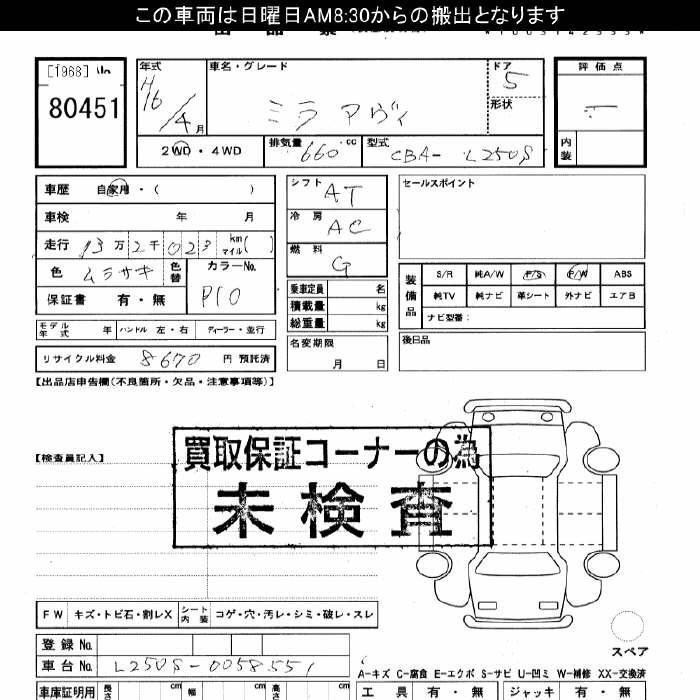 この車両は日曜日AM8:30からの搬出となります
[1968]
80451
年式
H16/4月
車名・グレード
ミラ アヴィ
ドア
5
形状
評価点
内装
2WD・4WD
排気量
660 cc
型式
CBA- L250S
車歴 自家用・( )
車検 年 月
走行 13万2千023 km マイル( )
色 ムラサキ 色替
カラーNo.
P10
保証書 有・無
シフト AT
冷房 AC
燃料 G
乗車定員 名
積載量 kg
総重量 kg
名変期限
月 日
セールスポイント
装備品
S/R 純A/W P/S P/W ABS
純TV 純ナビ 革シート 外ナビ エアB
ナビ型番:
後日品
モデル年式 年 ハンドル 左・右 ディーラー・並行
リサイクル料金 8670 円 預託済
【出品店申告欄(不良箇所・欠品・注意事項等)】
【検査員記入】
買取保証コーナーの為
未検査
FW キズ・トビ石・割レX シート内装 コゲ・穴・汚レ・シミ・破レ・スレ
登録No.
車台No. L250S-0058551
スペア
A-キズ C-腐食 E-エクボ S-サビ U-凹ミ W-補修 XX-交換済
車庫証明用 長さ cm 幅 cm 高さ cm
工具 有・無 ジャッキ 有・無